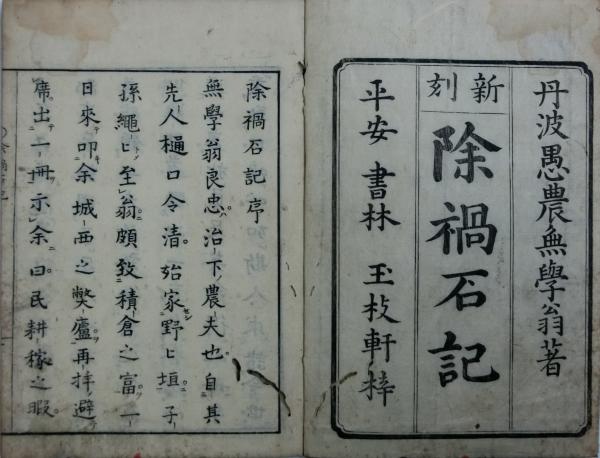 丹波愚農無學翁著
新刻
除禍石記
平安 書林 玉枝軒梓
除禍石記序
無學翁良忠治下農夫也自其
先人樋口令清始家野〻垣子
孫繩〻至翁頗致積倉之富一
日來叩余城西之弊廬再拝避
席出一冊示余曰民耕稼之暇